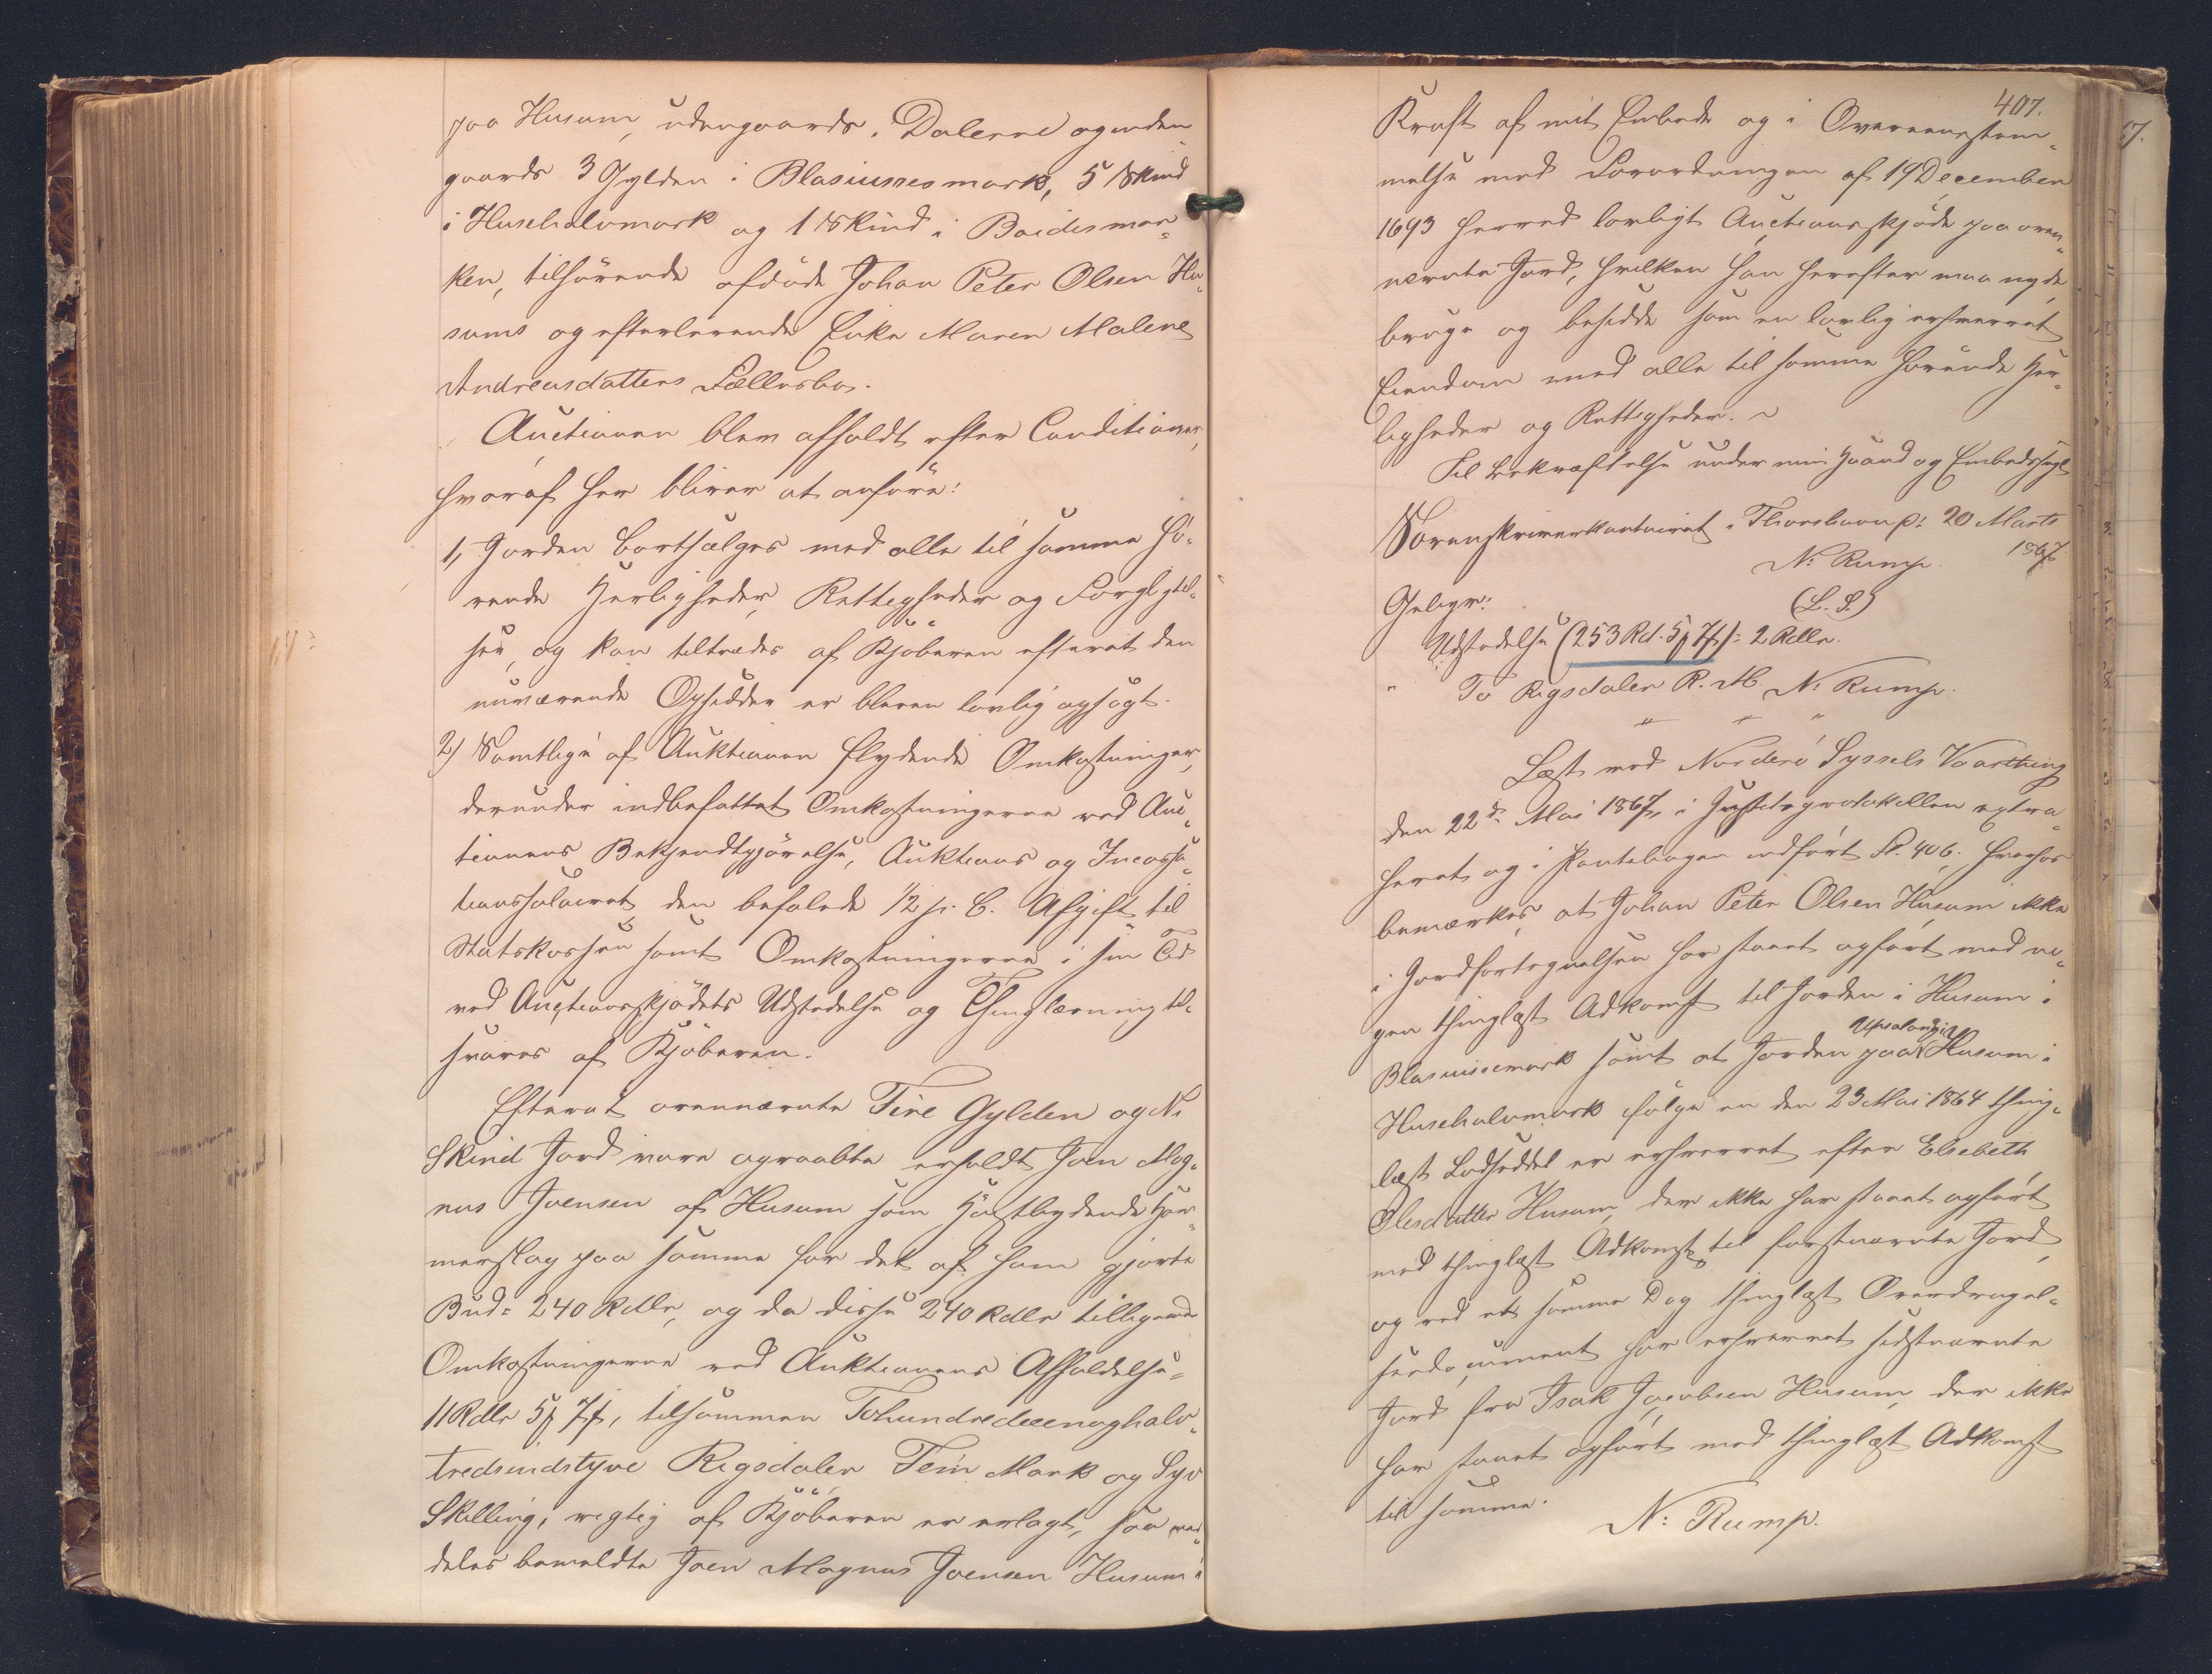 paa Husum, udengaards i Dalerne og inden-
gaards 3 Gylden i Blasiussesmark, 5 Skind
i Husehalvmark og 1 Skind i Boidesmar-
ken, tilhørende afdøde Johan Peter Olsen Hu-
sums og efterlevende Enke Maren Malene
Andreasdatters Fællesbo.
Auctionen blev afholdt efter Conditioner,
hvoraf her bliver at anføre:
1, Jorden bortsælges med alle til samme hø-
rende Herligheder, Rettigheder og Forpligtel-
ser, og kan tiltrædes af Kjøberen efterat den
nuværende Opsidder er bleven lovlig opsagt.
2) Samtlige af Auktionen flydende Omkostninger,
derunder indbefattet Omkostningerne ved Auc-
tionens Bekjendtgjørelse, Auktions og Incassa-
tionssalairet, den befalede 1/2 p. C. Afgift til
Statskassen samt Omkostningerne i sin Tid
ved Auctionsskjødets Udstedelse og Thinglæsning til-
svares af Kjøberen.
Efterat ovennævnte Fire Gylden og Ni
Skind Jord vare opraabte erholdt Joen Mag-
nus Joensen af Husum som Høistbydende Ham-
merslag paa samme for det af ham gjorte
Bud: 240 Rdlr, og da disse 240 Rdlr tilligemed
Omkostningerne ved Auktionens Afholdelse
11 Rdlr 5 ₻ 7 ß, tilsammen Tohundredeenoghalv-
tredsindstyve Rigsdaler Fem Mark og Syv
Skilling, rigtig af Kjøberen er erlagt, saa med-
deles bemeldte Joen Magnus Joensen Husum i
407.
Kraft af mit Embede og i Overeenstem-
melse med Forordningen af 19 December
1693 herved lovligt Auctionsskjøde paa oven-
nævnte Jord, hvilken han herefter maa nyde,
bruge og besidde som en lovlig erhvervet
Eiendom med alle til samme hørende Her-
ligheder og Rettigheder. ~
Til Bekræftelse under min Haand og Embedssegl
Sorenskriverkontoiret i Thorshavn p: 20 Marts
1867
N: Rump.
(L. S.)
Gebyr:
Udstedelse (253 Rd. 5 ₻ 7 ß): 2 Rdlr.
" To Rigsdaler R. M. N: Rump.
" " "
Læst ved Norderø Syssels Vaarthing
den 22de Mai 1867, i Justitsprotokollen extra-
heret og i Pantebogen indført P. 406. hvorhos
bemærkes, at Johan Peter Olsen Husum ikke
i Jordfortegnelsen har staaet opført med no-
gen thinglæst Adkomst til Jorden i Husum i
Blasiussemark samt at Jorden paa Husum i
Husehalvmark følge en den 23 Mai 1864 thing-
læst Lodseddel er erhvervet efter Elsebeth
Olesdatter Husum, der ikke har staaet opført
med thinglæst Adkomst til førstnævnte Jord,
og ved et samme Dag thinglæst Overdragel-
sesdocument har erhvervet sidstnævnte
Jord fra Isak Jacobsen Husum, der ikke
har staaet opført med thinglæst Adkomst
til samme.
N: Rump.